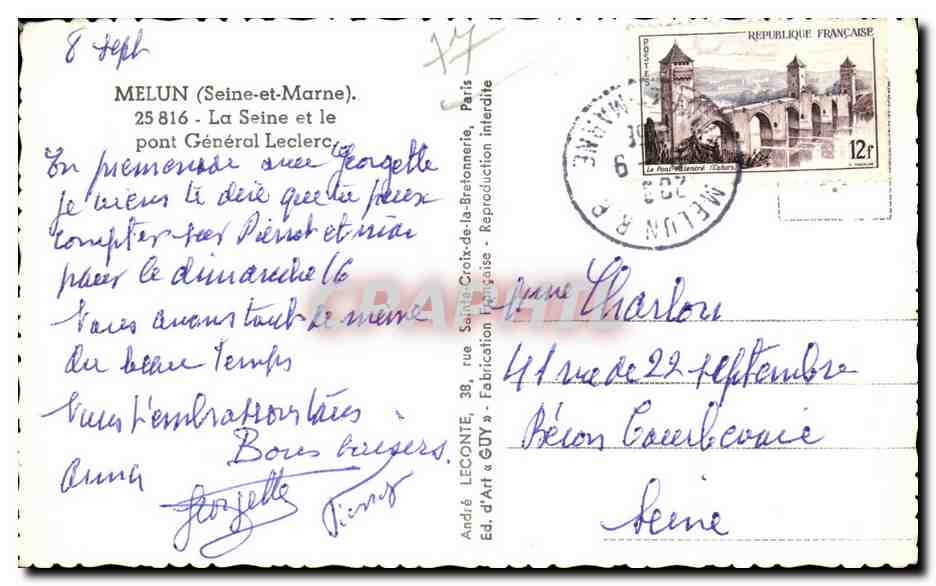 8 sept
77
MELUN (Seine-et-Marne).
25 816 - La Seine et le
pont Général Leclerc.
En promenade avec Georgette
je viens te dire que tu peux
compter sur Pierrot et moi
pour le dimanche 16
Nous avons tout de même
du beau temps
Nous t'embrassons tous
Bons baisers.
Anna
Georgette
Pierrot
André LECONTE, 38, rue Sainte-Croix-de-la-Bretonnerie, Paris
Ed. d'Art « GUY » - Fabrication Française - Reproduction interdite
REPUBLIQUE FRANÇAISE
POSTES
12f
Le Pont Valentré (Cahors)
MELUN R.P.
MARNE
CPARAMA
Mme Charlou
41 rue de 22 septembre
Bécon Courbevoie
Seine